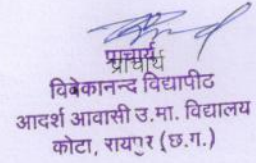 प्राचार्य
विवेकानन्द विद्यापीठ
आदर्श आवासी उ.मा. विद्यालय
कोटा, रायपुर (छ.ग.)